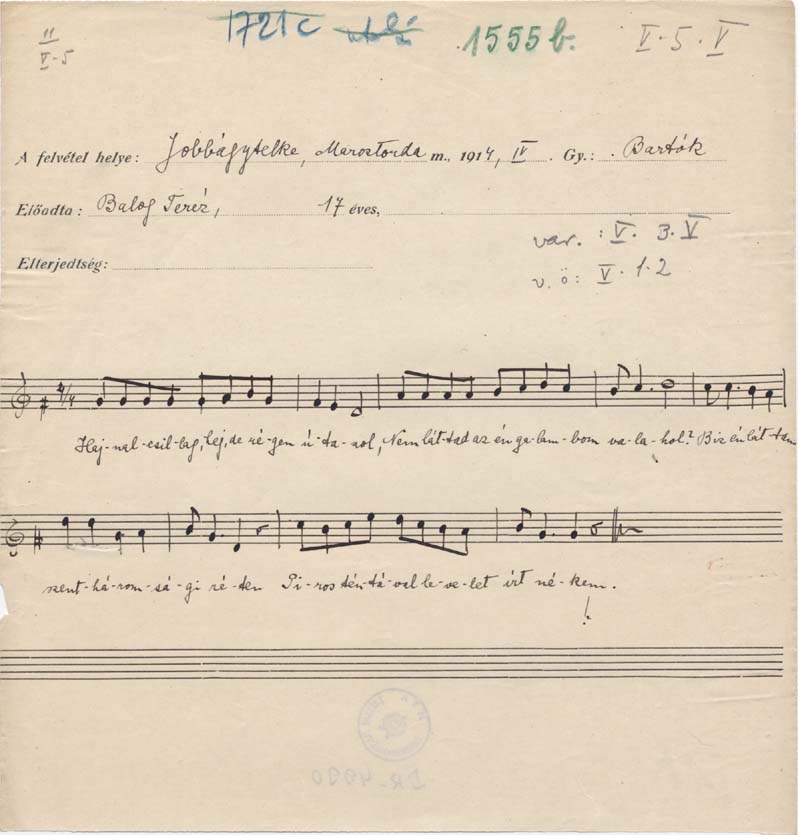 II 1721c 1555 b. V. 5. V
V-5
A felvétel helye: Jobbágytelke, Marostorda m., 1914, IV. Gy.: Bartók
Előadta: Balog Teréz, 17 éves,
var. : V. 3. V
Elterjedtség:
v. ö: V. 1. 2
2/4
Haj-nal-csil-lag, lej, de ré-gen ú-ta-zol, Nem lát-tad az én ga-lam-bom va-la-hol? Biz én lát-tam
szent-há-rom-sá-gi ré-ten Pi-ros tén-tá-val le-ve-let írt né-kem.
!
DR-4990